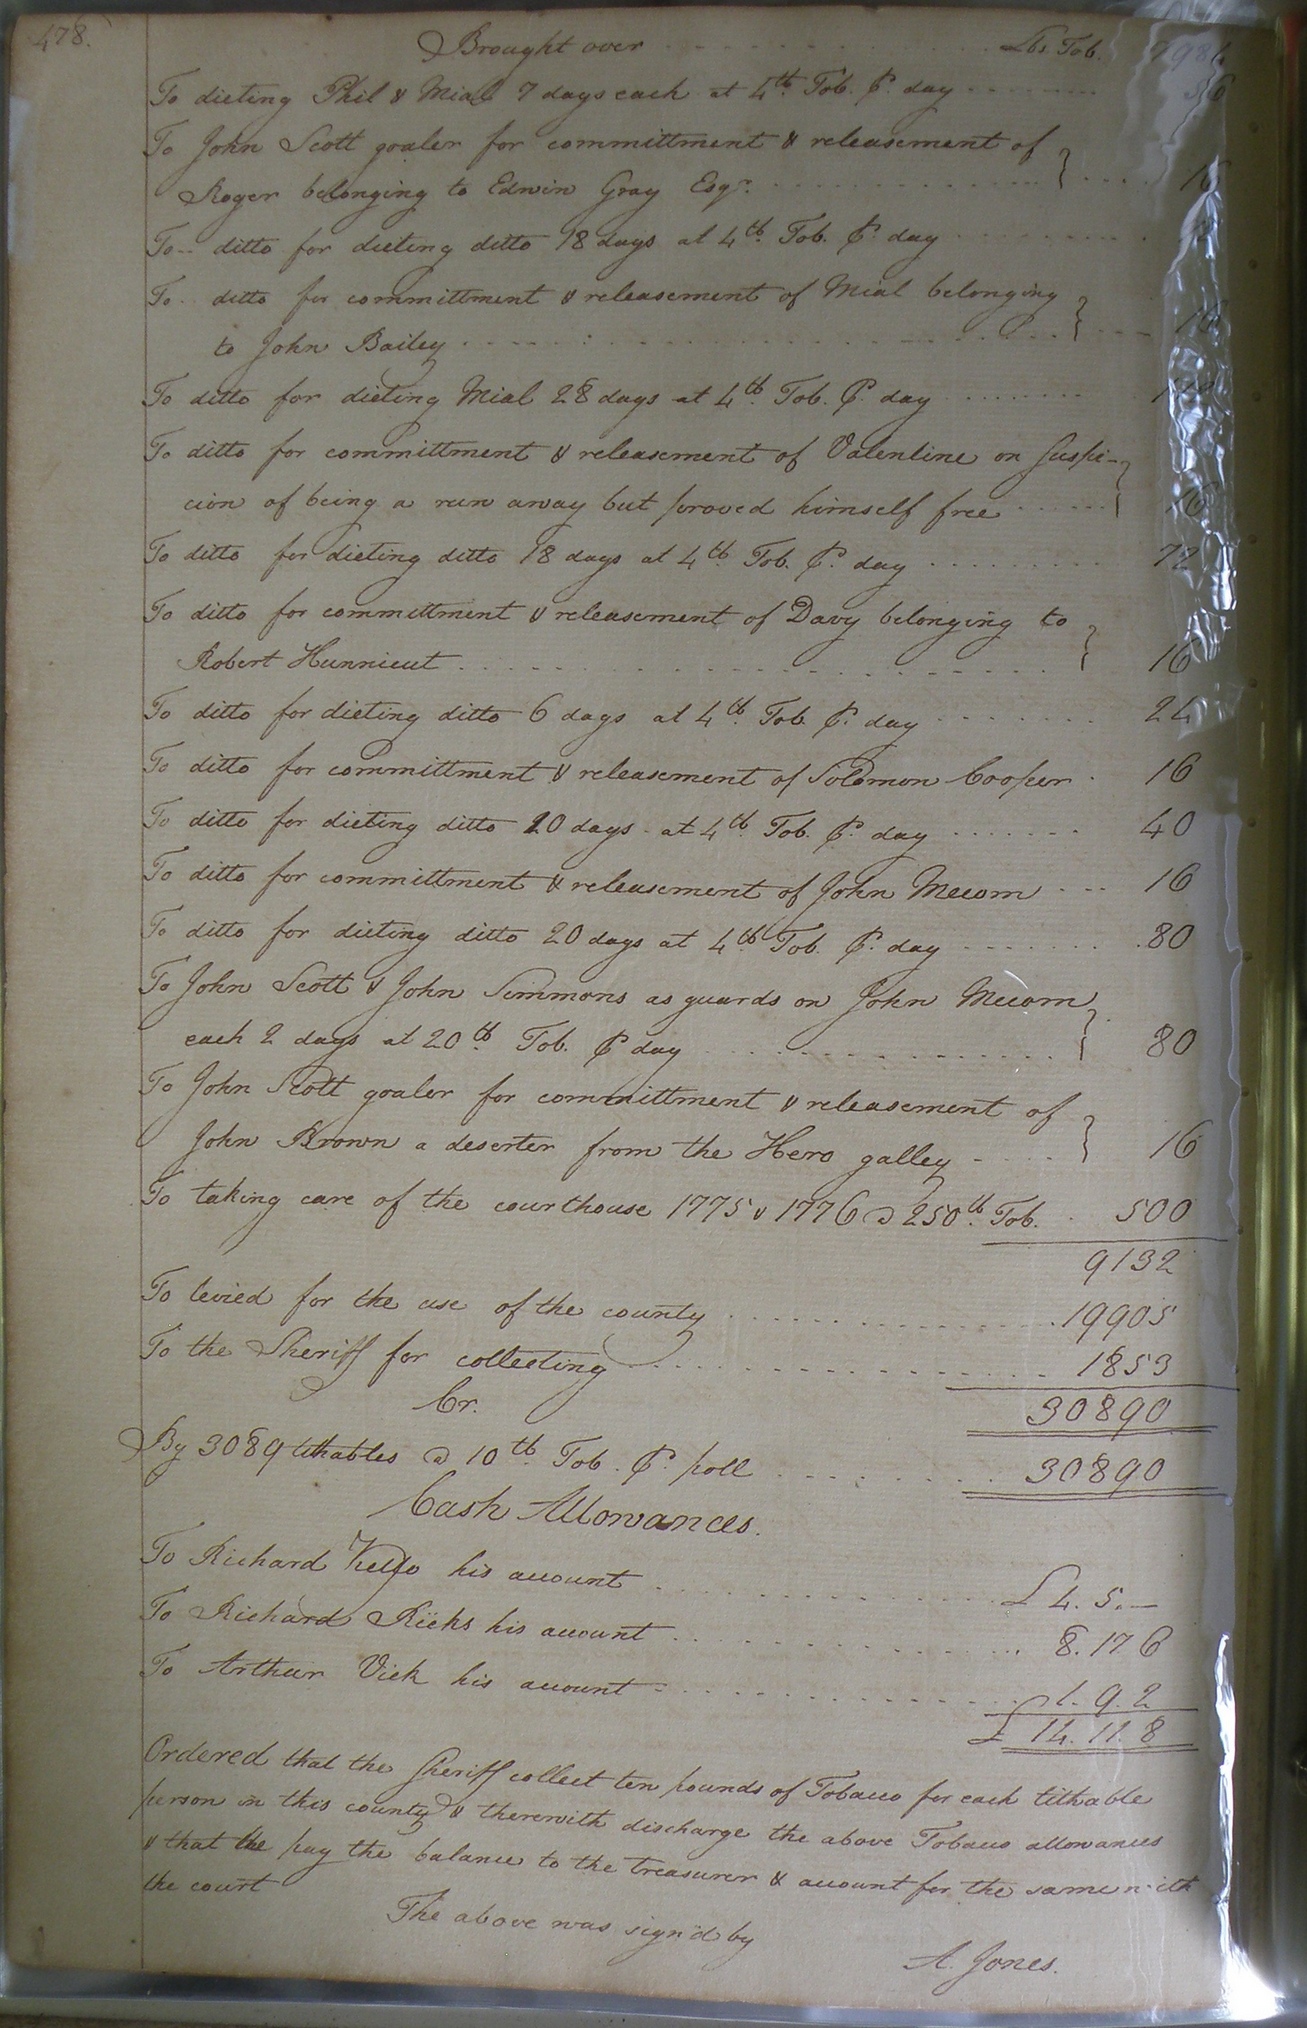 478.
Brought over Lbs. Tob. 7984
To dieting Phil & Mial 7 days each at 4lb. Tob. ⅌ day 56
To John Scott goaler for committment & releasement of
Roger belonging to Edwin Gray Esqr. 16
To ditto for dieting ditto 18 days at 4lb. Tob. ⅌ day
To ditto for committment & releasement of Mial belonging
to John Bailey 16
To ditto for dieting Mial 28 days at 4lb. Tob. ⅌ day
To ditto for committment & releasement of Valentine on Suspi-
cion of being a run away but proved himself free 16
To ditto for dieting ditto 18 days at 4lb. Tob. ⅌ day 72
To ditto for committment & releasement of Davy belonging to
Robert Hunnicut 16
To ditto for dieting ditto 6 days at 4lb. Tob. ⅌ day 24
To ditto for committment & releasement of Solomon Cooper 16
To ditto for dieting ditto 10 days at 4lb. Tob. ⅌ day 40
To ditto for committment & releasement of John Mecom 16
To ditto for dieting ditto 20 days at 4lb. Tob. ⅌ day 80
To John Scott & John Simmons as guards on John Mecom
each 2 days at 20lb. Tob. ⅌ day 80
To John Scott goaler for committment & releasement of
John Brown a deserter from the Hero galley 16
To taking care of the courthouse 1775 & 1776 @ 250lb. Tob. 500
9132
To levied for the use of the county 19905
To the Sheriff for collecting 1853
Cr. 30890
By 3089 tithables @ 10lb. Tob. ⅌ poll 30890
Cash Allowances.
To Richard Kello his account £ 4. 5. —
To Richard Ricks his account 8. 17 6
To Arthur Vick his account 1. 9. 2
£ 14. 11. 8
Ordered that the Sheriff collect ten pounds of Tobacco for each tithable
person in this county & therewith discharge the above Tobacco allowances
& that he pay the balance to the treasurer & account for the same with
the court
The above was sign'd by
A. Jones.